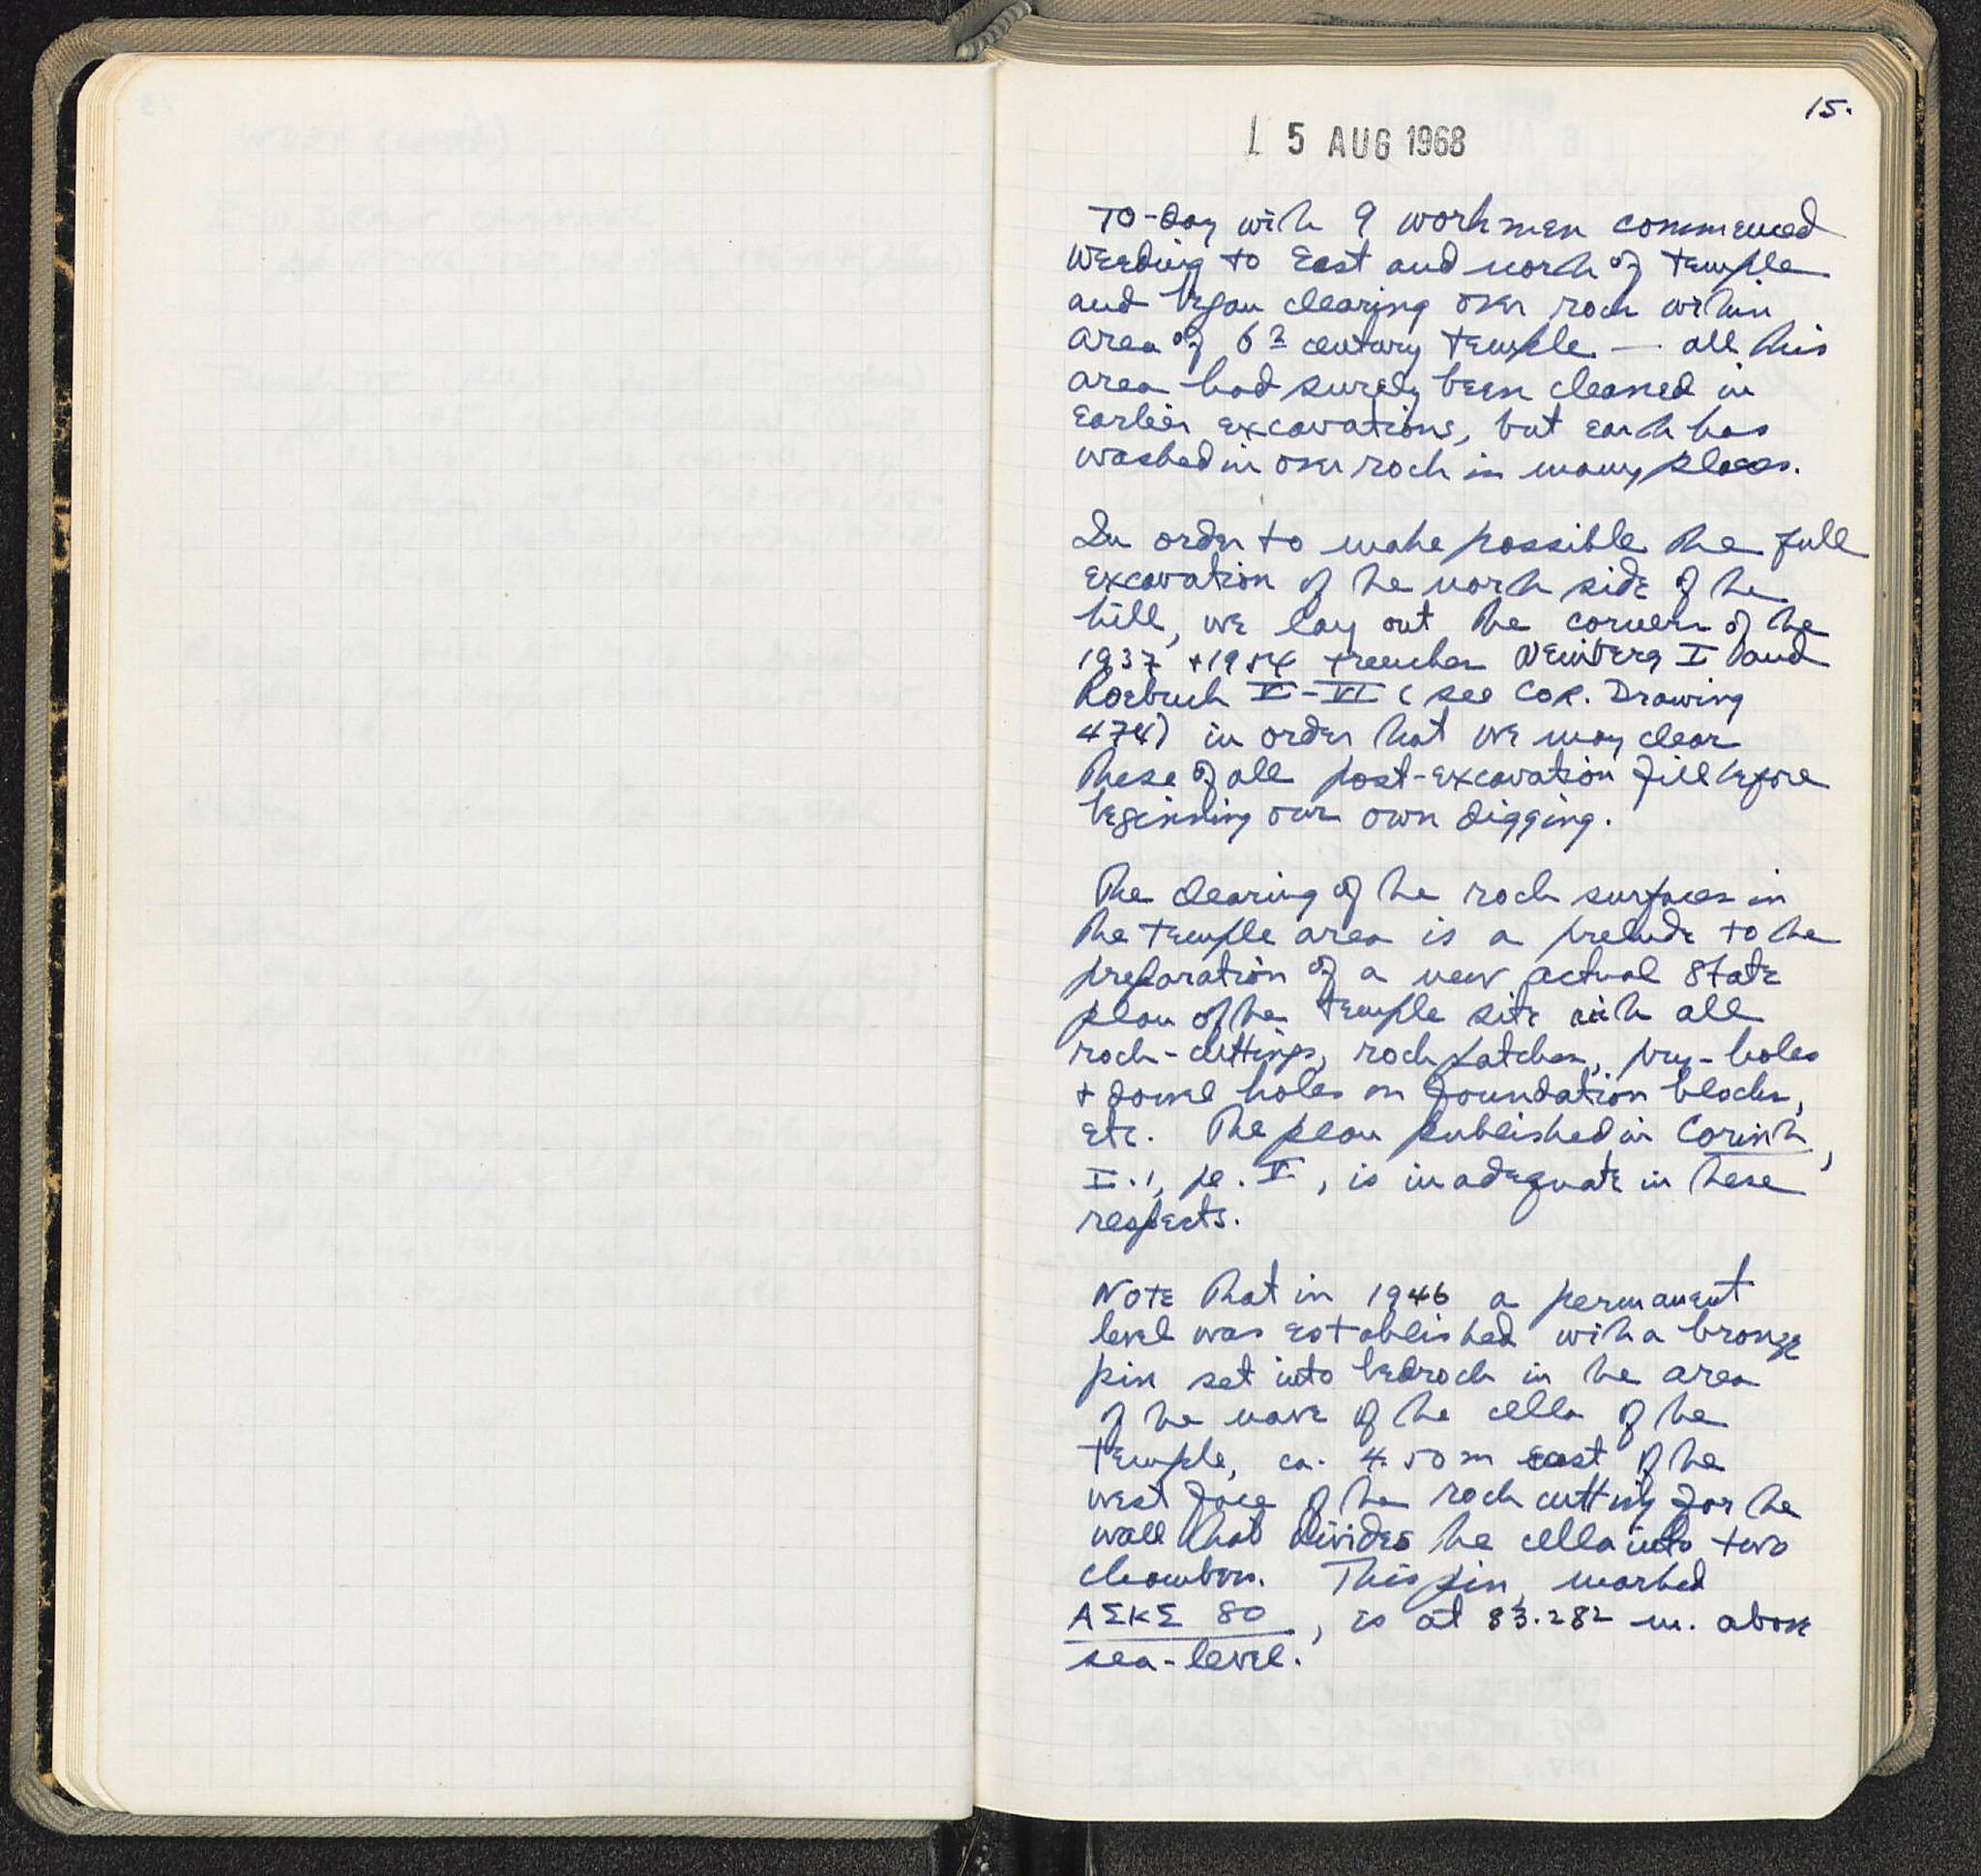 15.
5 AUG 1968
To-day with 9 workmen commenced
weeding to East and north of temple
and began clearing over rock within
area of 6th century temple — all this
area had surely been cleaned in
earlier excavations, but earth has
washed in over rock in many places.
In order to make possible the full
excavation of the north side of the
hill, we lay out the corners of the
1937 + 1954 trenches Weinberg I and
Roebuck V-VI (see Cor. Drawing
474) in order that we may clear
these of all post-excavation fill before
beginning our own digging.
The clearing of the rock surfaces in
the temple area is a prelude to the
preparation of a new actual state
plan of the temple site with all
rock-cuttings, rock patches, pry-holes
+ dowel holes on foundation blocks,
etc. The plan published in Corinth,
I.1, pl. V, is inadequate in these
respects.
Note that in 1946 a permanent
level was established with a bronze
pin set into bedrock in the area
of the nave of the cella of the
temple, ca. 4.50 m east of the
west face of the rock cutting for the
wall that divides the cella into two
chambers. This pin, marked
ΑΣΚΣ 80, is at 83.282 m. above
sea-level.